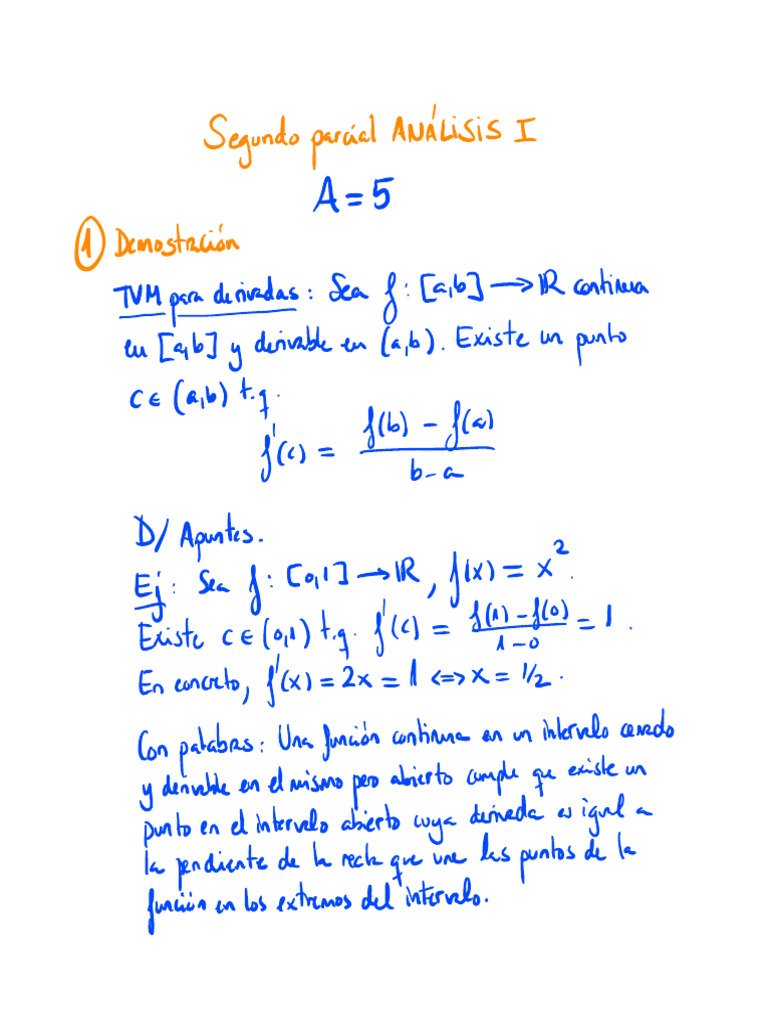 Segundo parcial ANÁLISIS I
A = 5
① Demostración
TVM para derivadas: Sea f: [a,b] → ℝ continua
en [a,b] y derivable en (a,b). Existe un punto
c ∈ (a,b) t.q.
f'(c) = (f(b) - f(a)) / (b - a)
D/ Apuntes.
Ej: Sea f: [0,1] → ℝ, f(x) = x².
Existe c ∈ (0,1) t.q. f'(c) = (f(1) - f(0)) / (1 - 0) = 1.
En concreto, f'(x) = 2x = 1 <=> x = 1/2.
Con palabras: Una función continua en un intervalo cerrado
y derivable en el mismo pero abierto cumple que existe un
punto en el intervalo abierto cuya derivada es igual a
la pendiente de la recta que une los puntos de la
función en los extremos del intervalo.